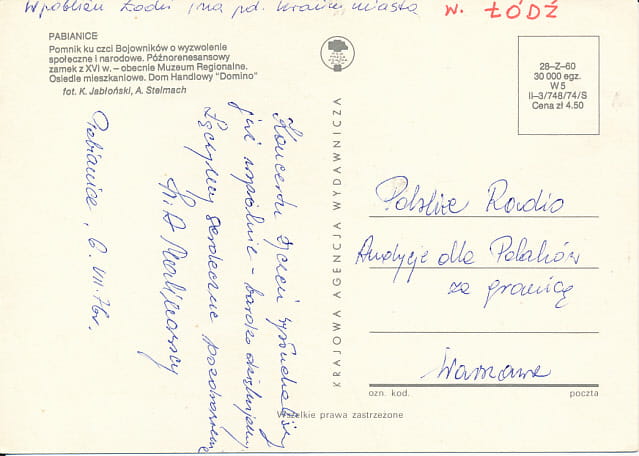 W pobliżu Łodzi i na pd. krańcu miasta w. ŁÓDŹ
PABIANICE
Pomnik ku czci Bojowników o wyzwolenie
społeczne i narodowe. Późnorenesansowy
zamek z XVI w. – obecnie Muzeum Regionalne.
Osiedle mieszkaniowe. Dom Handlowy "Domino"
fot. K. Jabłoński, A. Stelmach
28-Z-60
30 000 egz.
W 5
II-3/746/74/S
Cena zł 4.50
Koncertu życzeń wysłuchaliśmy
już wspólnie - bardzo dziękujemy.
Łączymy serdeczne pozdrowienia
Pabianice, 6. VII. 76r.
KRAJOWA AGENCJA WYDAWNICZA
Polskie Radio
Audycje dla Polaków
za granicą
Warszawa
ozn. kod. poczta
Wszelkie prawa zastrzeżone